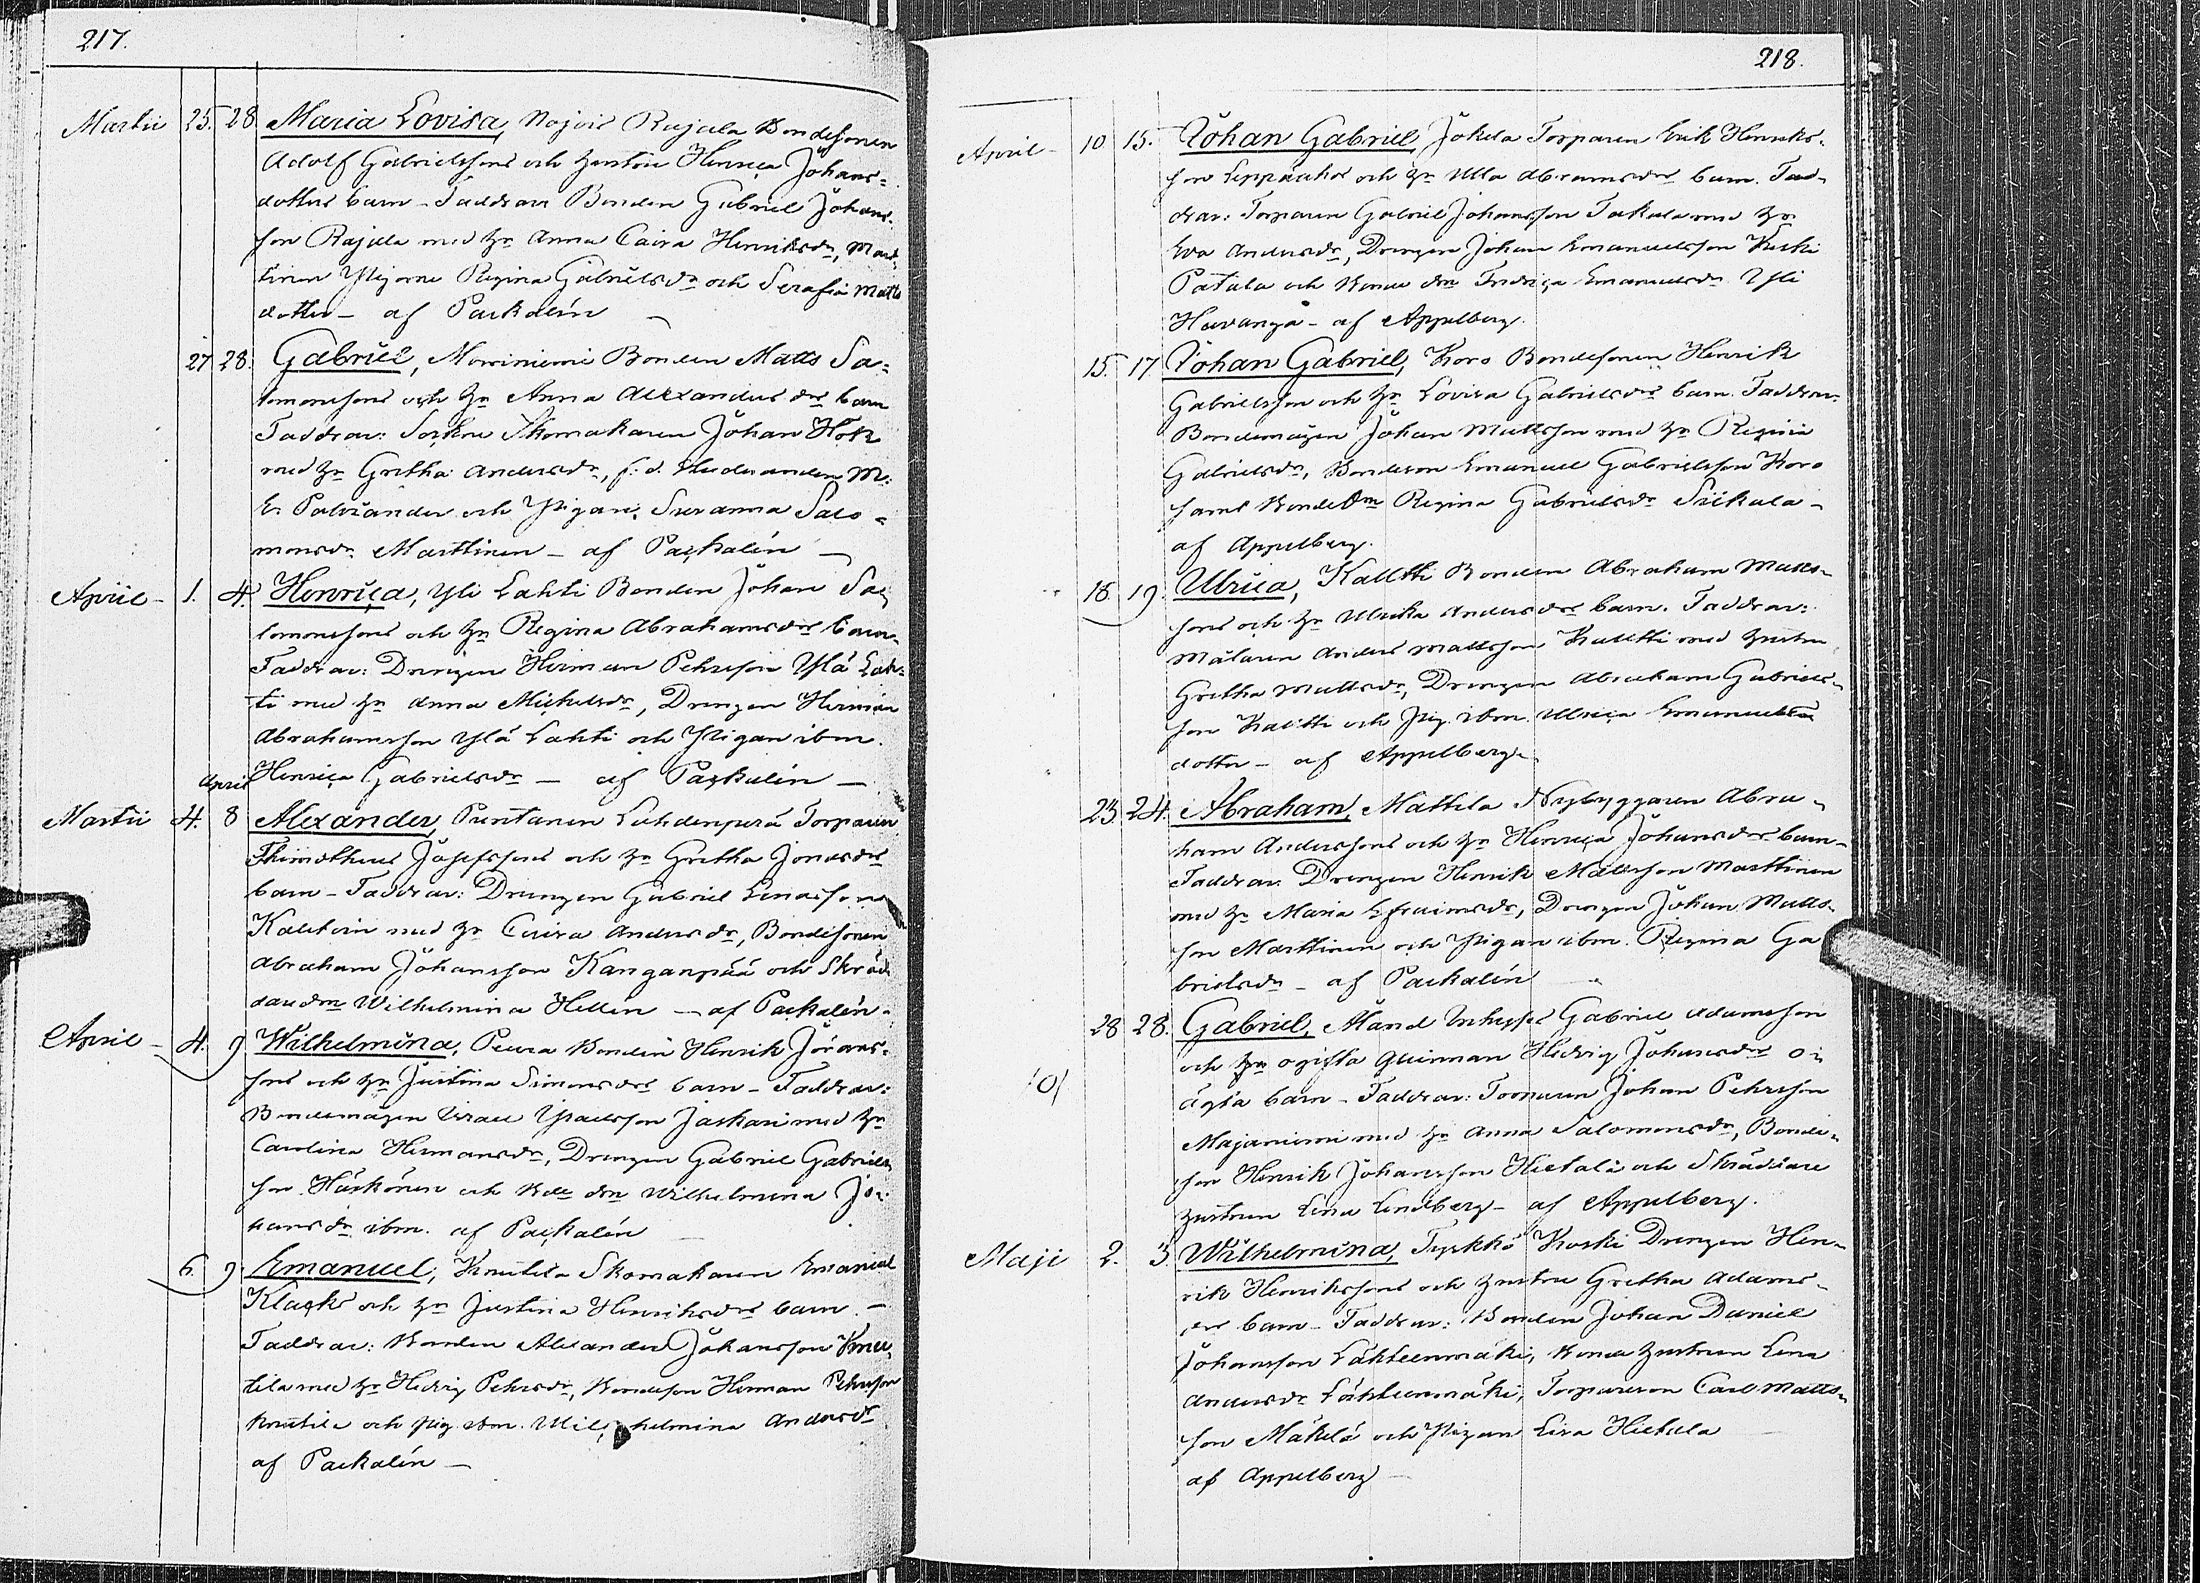 217.
Martii 25. 28. Maria Lovisa, Rajala Bondesonen
Adolf Gabrielssons och hustru Henrica Johans-
dotters barn – Faddrar Bonden Gabriel Johans-
son Rajala med h:n Anna Caisa Henriksdr, Mart-
tinen Pigorna Regina Gabrielsdr och Serafia Matts
dotter – af Packalén –
27 28. Gabriel, Bonden Matts Sa-
lomonssons och h:n Anna Alexanders drs barn
Faddrar: Sockne Skomakaren Johan Hök
med h:n Gretha Andersdr, f. d. Studeranden M:
E. Polviander och Pigan Susanna Salo-
monsdr Marttinen – af Packalén –
April – 1. 4. Henrica, Yli Lahti Bonden Johan Sa-
lomonssons och h:n Regina Abrahamsdrs barn –
Faddrar: Drengen Herman Pehrsson Ylä Lah-
ti med h:n Anna Michelsdr, Drengen Herman
Abrahamsson Ylä Lahti och Pigan ibm.
April Henrica Gabrielsdr – af Packalén –
Martii 4. 8 Alexander, Puntanen Torparen
Thimotheus Josefssons och h:n Gretha Jonasdrs
barn – Faddrar: Drengen Gabriel
med h:n Caisa Andersdr, Bondesonen
Abraham Johansson Kanganpää och Skräd-
dare drn Wilhelmina Hellen – af Packalén –
April – 4. 9 Wilhelmina, Peura Bonden Henrik Jörans-
sons och h:n Justina Simonsdrs barn – Faddrar:
Bondemågen Israel Jaskari med h:n
Carolina Hermansdr, Drengen Gabriel Gabriels-
son Härkönen och Bde drn Wilhelmina Jo-
hansdr ibm. af Packalén
6. 9. Emanuel, Knutila Skomakaren Emanuel
och h:n Justina Henriksdrs barn. –
Faddrar: Bonden Alexander Johansson Knu-
tila med h:n Hedvig Pehrsdr, Bondeson Herman Pehrsson
Knutila och pig. ibm. Wil helmina Andersdr
af Packalén –
218.
April – 10 15. Johan Gabriel, Jokela Torparen Erik Henriks-
son och h:n Ulla Abramsdrs barn. Fad-
drar: Torparen Gabriel Johansson Takala med h:n
Eva Andersdr, Drengen Johan Emanuelsson Keski
Patala och Bonde drn Fredrica Emanuelsdr Yli
Havanga – af Appelberg.
15. 17. Johan Gabriel, Koro Bondesonen Henrik
Gabrielsson och h:n Lovisa Gabrielsdrs barn. Faddrar:
Bondemågen Johan Mattsson med h:n Regina
Gabrielsdr, Bondeson Emanuel Gabrielsson Koro
samt Bondedrn Regina Gabrielsdr Siikala –
af Appelberg.
18 19. Ulrica, Kaletti Bonden Abraham Matts-
sons och h:n Ulrika Andersdrs barn. Faddrar:
Målaren Anders Mattsson Kaletti med hustru
Gretha Mattsdr, Drengen Abraham Gabriels-
son Kaletti och pig. ibm. Ulrica Emanuels
dotter – af Appelberg.
23. 24. Abraham, Mattila Nybyggaren Abra-
ham Anderssons och h:n Henrica Johansdrs barn –
Faddrar: Drengen Henrik Mattsson Marttinen
med h:n Maria Efraimsdr, Drengen Johan Matts-
son Marttinen och Pigan ibm. Regina Ga
brielsdr – af Packalén
28 28. Gabriel, Mänd Inhyses Gabriel Adamsson
och h:n ogifta Quinnan Hedvig Johansdrs o-
ägta barn – Faddrar: Torparen Johan Pehrsson
Majaniemi med h:n Anna Salomonsdr, Bonde-
son Henrik Johansson Hietala och Skräddare
hustrun Lena Lindberg – af Appelberg.
Maji 2. 3. Wilhelmina, Tyrkkö Koski Drengen Hen-
rik Henrikssons och hustru Gretha Adams-
drs barn – Faddrar: Bonden Johan Daniel
Johansson Lahteenmäki, Bonde hustrun Lena
Andersdr Lähteenmäki, Torpareson Carl Matts-
son Mäkelä och Pigan Lisa Hietala
af Appelberg –